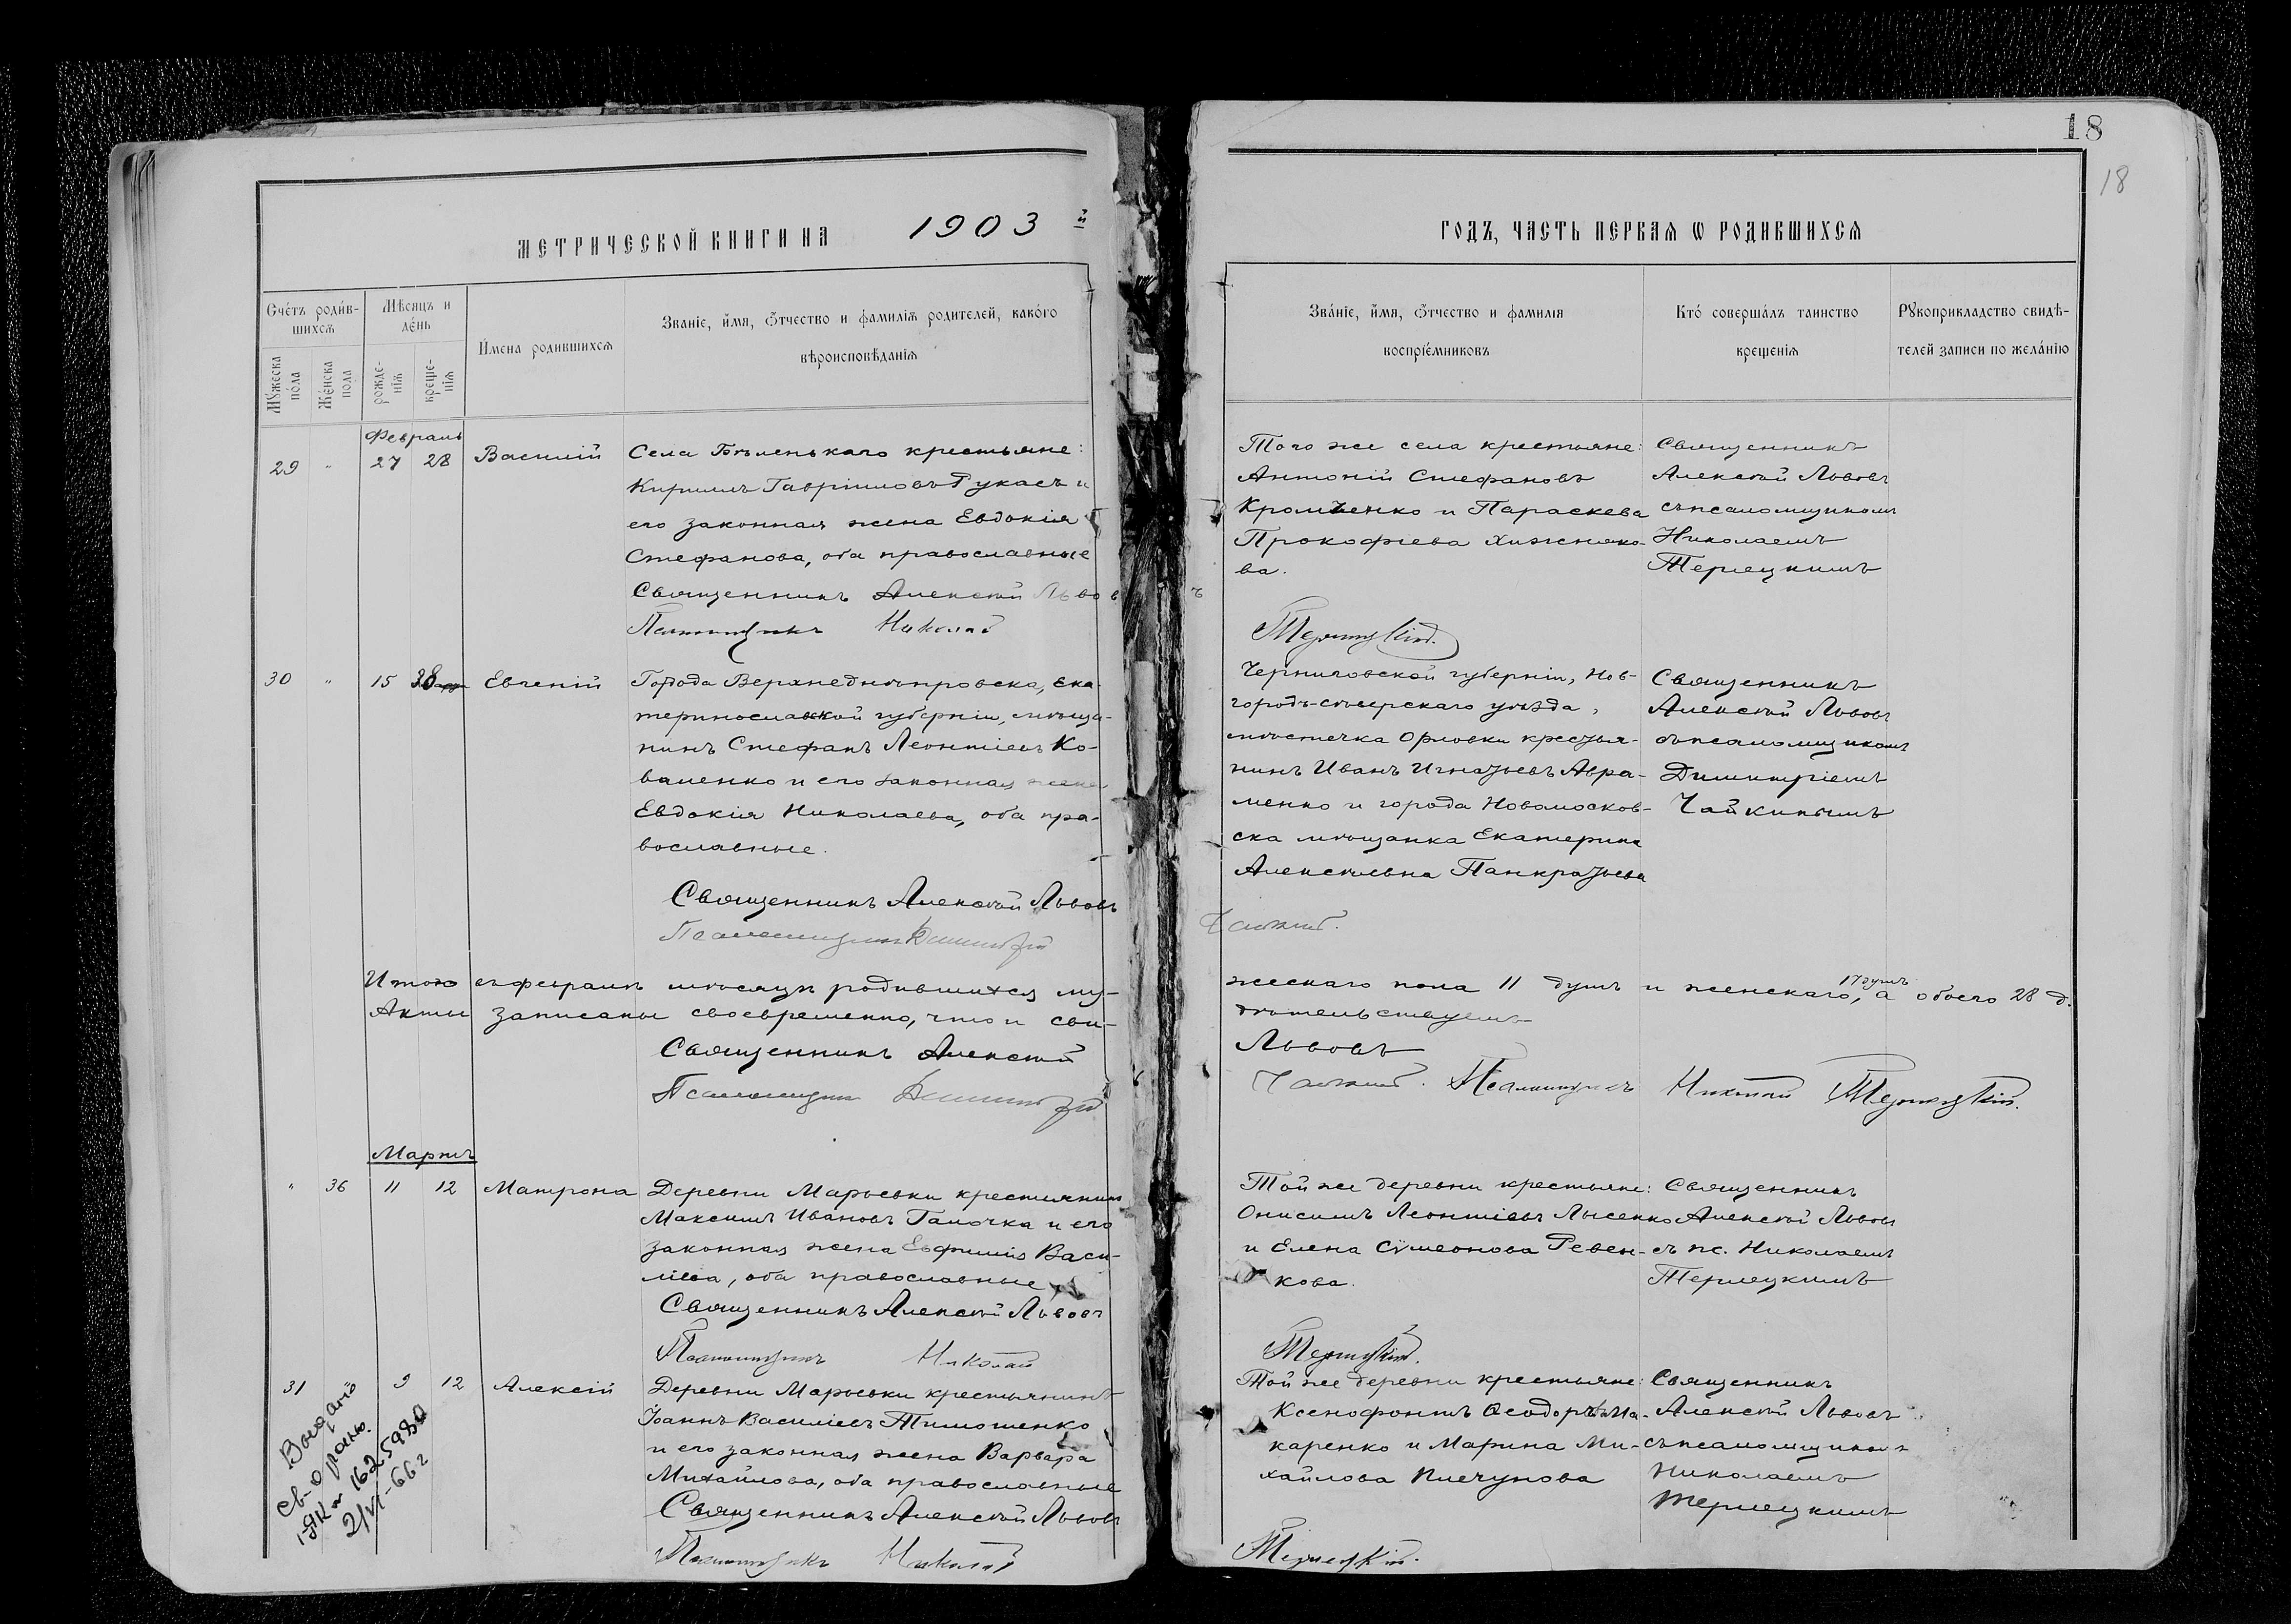 18
18
МЕТРИЧЕСКОЙ КНИГИ НА 1903 й
ГОДЪ, ЧАСТЬ ПЕРВАЯ Ѡ РОДИВШИХСЯ
Счетъ родив-
шихся
Мужеска
пола
Женска
пола
Мѣсяцъ и
день
рожде-
нія
креще-
нія
Имена родившихся
Званіе, имя, отчество и фамилія родителей, какого
вѣроисповѣданія
Званіе, имя, отчество и фамилія
воспріемниковъ
Кто совершалъ таинство
крещенія
Рукоприкладство свидѣ-
телей записи по желанію
Февраль
29 " 27 28 Василій
Села Бѣленькаго крестьяне:
Кириллъ Гавріиловъ Рукасъ и
его законная жена Евдокія
Стефанова, оба православные
Священникъ Алексѣй Львовъ
Псаломщикъ Николай
Терлецкій.
Того же села крестьяне:
Антоній Стефановъ
Кромченко и Параскева
Прокофіева Хижняко-
ва.
Священникъ
Алексѣй Львовъ
съ псаломщикомъ
Николаемъ
Терлецкимъ
30 " 15 28 Евгеній
Города Верхнеднѣпровска, Ека-
теринославской губерніи, мѣща-
нинъ Стефанъ Леонтіевъ Ко-
валенко и его законная жена
Евдокія Николаева, оба пра-
вославные.
Священникъ Алексѣй Львовъ
Псаломщикъ Димитрій
Чайкинъ.
Черниговской губерніи, Нов-
городъ-сѣверскаго уѣзда,
мѣстечка Орловки крестья-
нинъ Иванъ Игнатьевъ Авра-
менко и города Новомосков-
ска мѣщанка Екатерина
Алексѣевна Панкратьева
Священникъ
Алексѣй Львовъ
съ псаломщикомъ
Димитріемъ
Чайкинымъ
Итого въ февралѣ мѣсяцѣ родившихся му-
жескаго пола 11 душъ и женскаго 17 душъ, а обоего 28 д.
Акты записаны своевременно, что и сви-
дѣтельствуемъ
Священникъ Алексѣй
Львовъ
Псаломщикъ Димитрій
Чайкинъ. Псаломщикъ Николай Терлецкій.
Мартъ
" 36 11 12 Матрона
Деревни Марьевки крестьянинъ
Максимъ Ивановъ Галочка и его
законная жена Евфимія Васи-
ліева, оба православные
Священникъ Алексѣй Львовъ
Псаломщикъ Николай
Терлецкій.
Той же деревни крестьяне:
Онисимъ Леонтіевъ Лысенко
и Елена Сумеонова Ревен-
кова.
Священникъ
Алексѣй Львовъ
съ пс. Николаемъ
Терлецкимъ
31 9 12 Алексій
Деревни Марьевки крестьянинъ
Іоаннъ Василіевъ Тимошенко
и его законная жена Варвара
Михайлова, оба православные
Священникъ Алексѣй Львовъ
Псаломщикъ Николай
Терлецкій.
Той же деревни крестьяне:
Ксенофонтъ Ѳеодоровъ Ма-
каренко и Марина Ми-
хайлова Плечунова
Священникъ
Алексѣй Львовъ
съ псаломщикомъ
Николаемъ
Терлецкимъ
Выдано
св-о
2/VI-66г